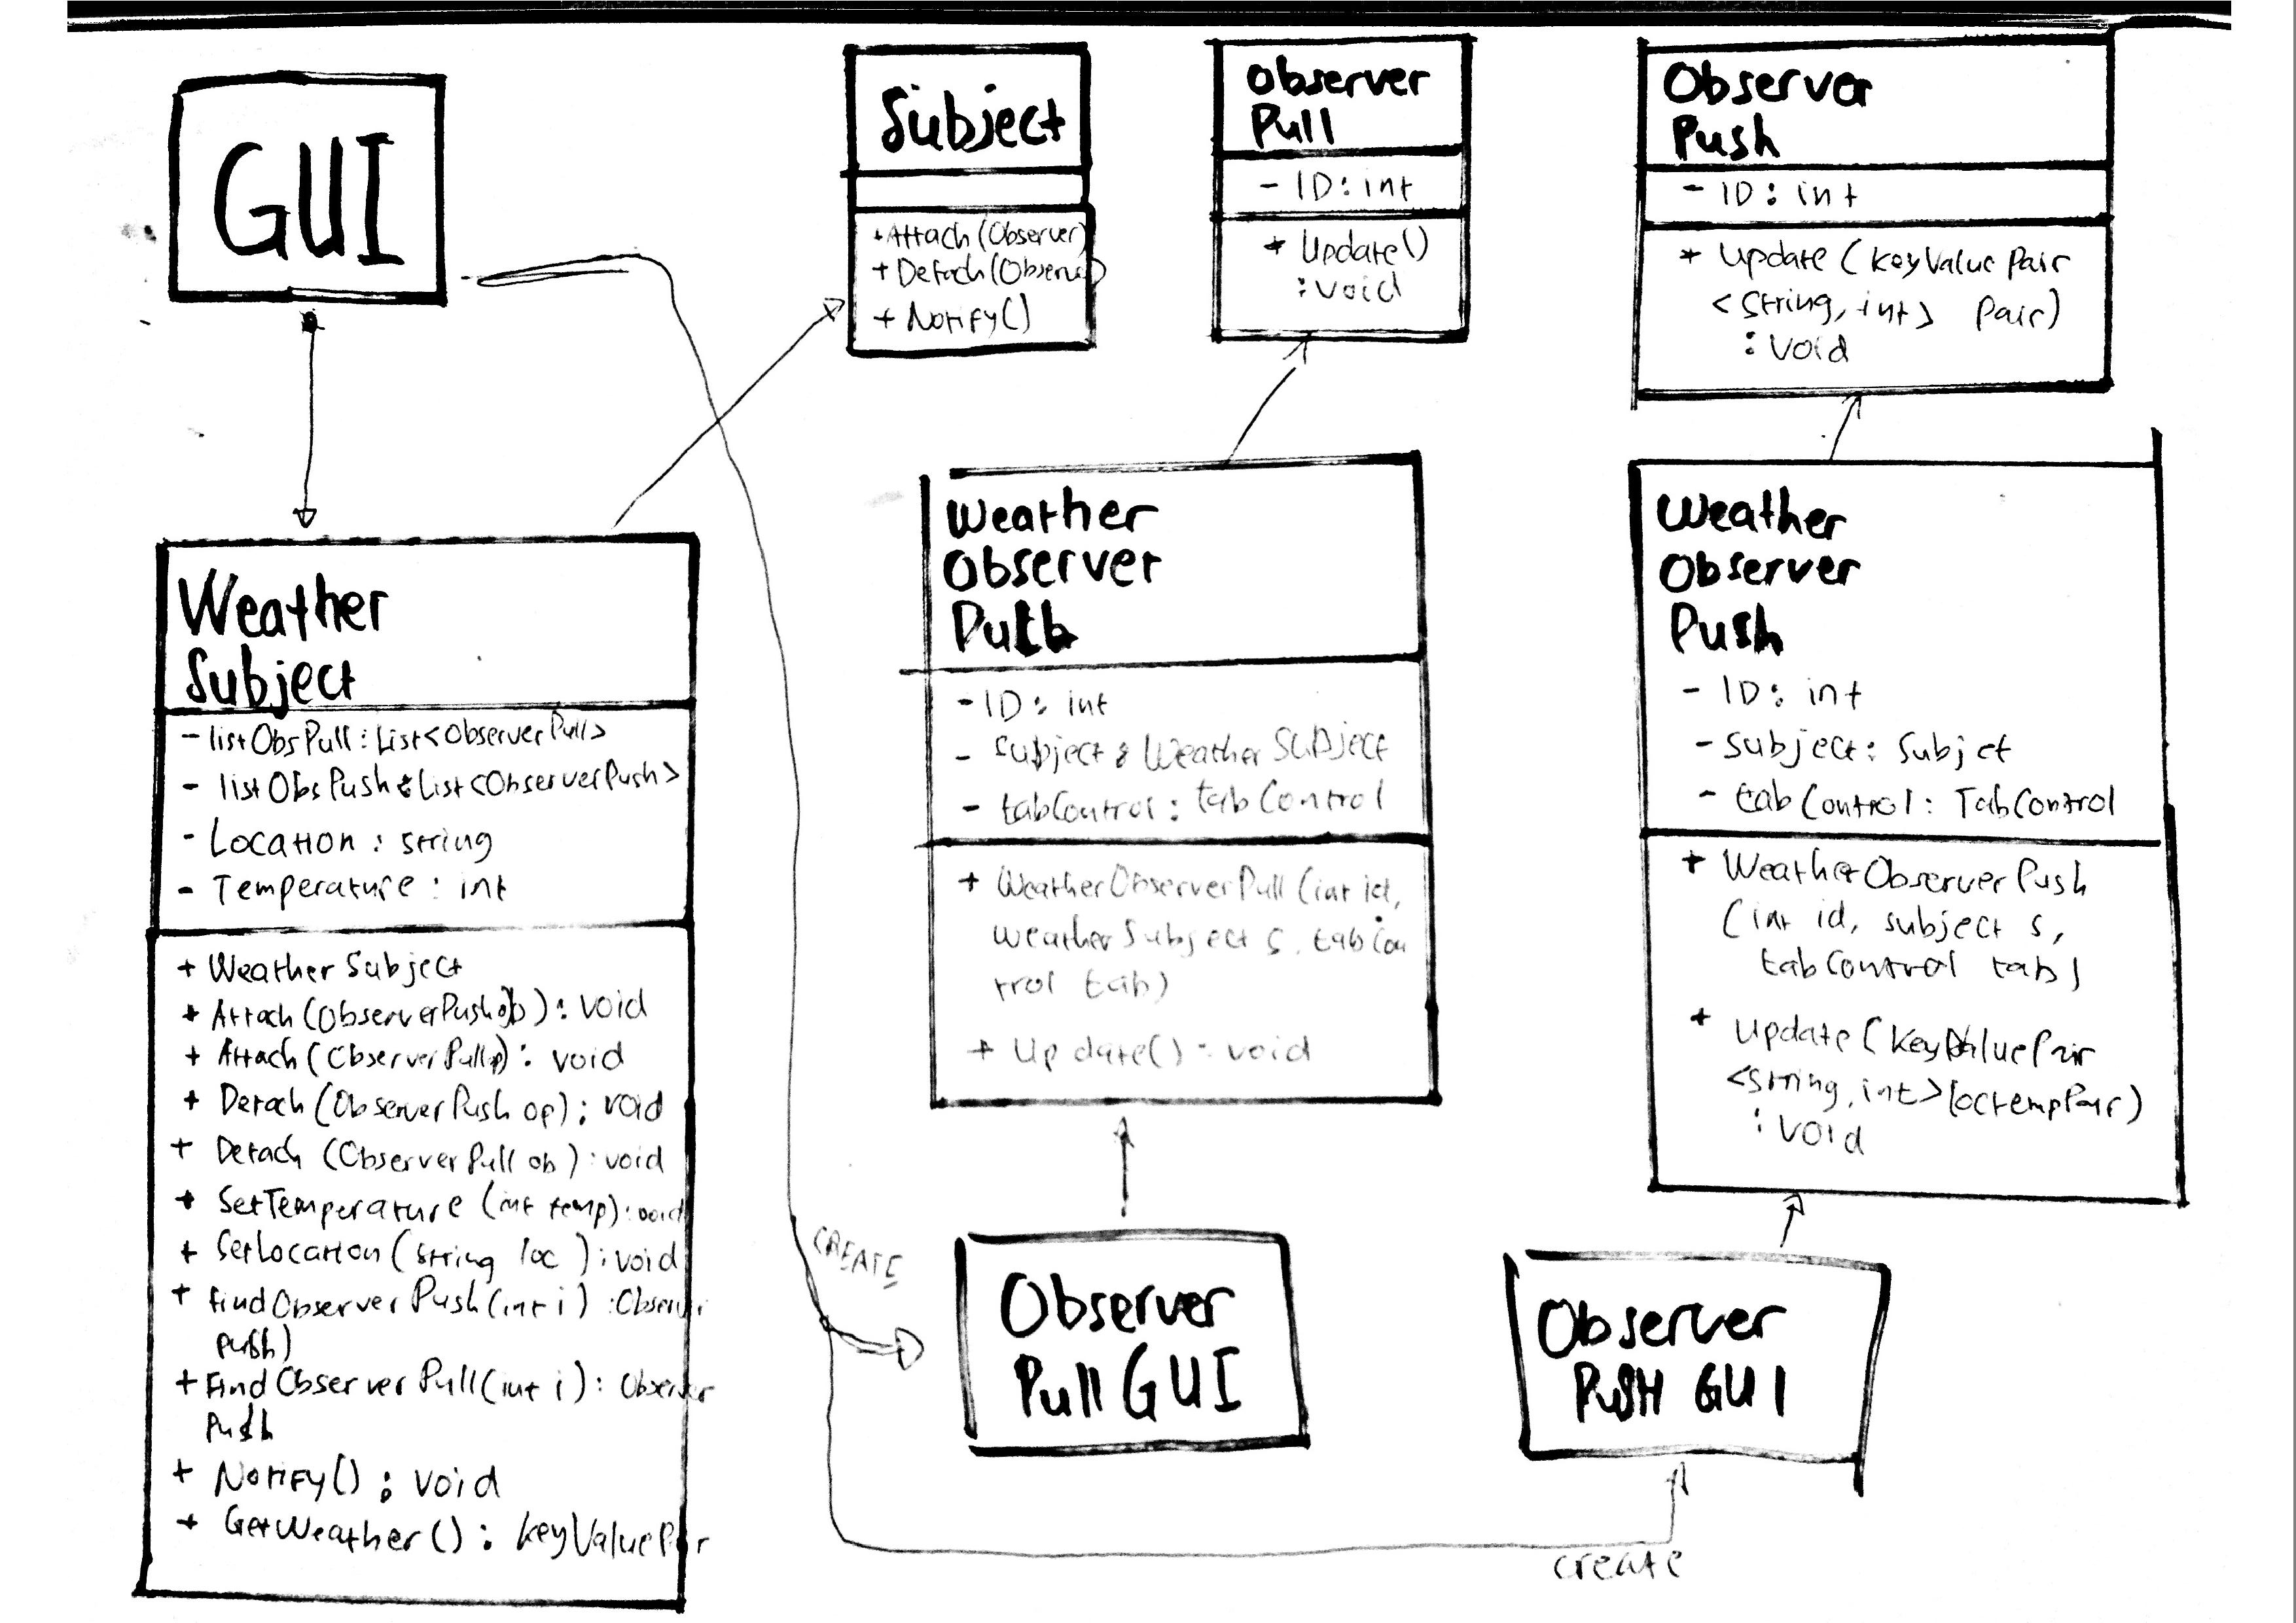 GUI
Subject
+ Attach (Observer)
+ Detach (Observer)
+ Notify()
Observer
Pull
- ID: int
+ Update()
: void
Observer
Push
- ID: int
+ Update (KeyValuePair
<string, int> pair)
: void
Weather
Subject
- listObsPull: List<ObserverPull>
- listObsPush: List<ObserverPush>
- Location: string
- Temperature: int
+ WeatherSubject
+ Attach (ObserverPush ob): void
+ Attach (ObserverPull op): void
+ Detach (ObserverPush op): void
+ Detach (ObserverPull ob): void
+ SetTemperature (int temp): void
+ SetLocation (string loc): void
+ findObserverPush (int i) : Observer
Push)
+ FindObserverPull (int i): Observer
Push
+ Notify() : void
+ GetWeather() : KeyValuePair
Weather
Observer
- ID: int
- Subject: WeatherSubject
- tabControl: tabControl
+ WeatherObserverPull (int id,
weatherSubject s, tabCon
trol tab)
+ Update() : void
Weather
Observer
Push
- ID: int
- subject: Subjct
- tabControl: TabControl
+ WeatherObserverPush
(int id, subject s,
tabControl tab)
+ update (KeyValuePair
<string, int> loctempPair)
: void
CREATE
Observer
Pull GUI
Observer
PUSH GUI
create